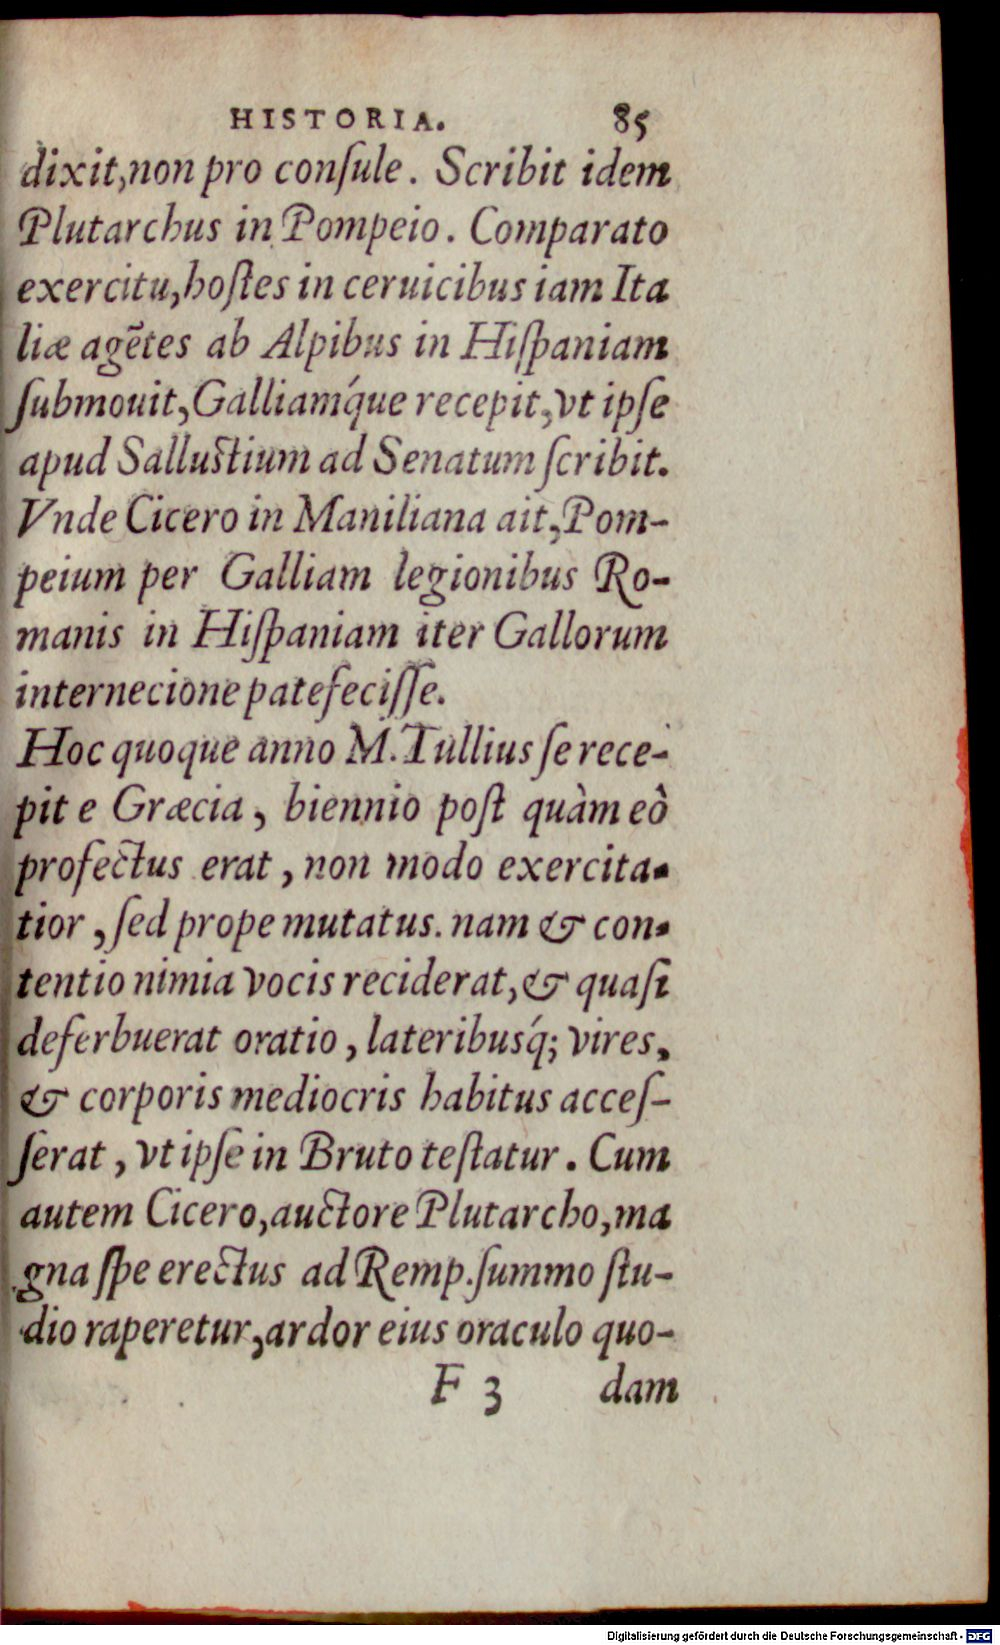 HISTORIA. 85
dixit, non pro conſule. Scribit idem
Plutarchus in Pompeio. Comparato
exercitu, hoſtes in ceruicibus iam Ita
liæ agẽtes ab Alpibus in Hiſpaniam
ſubmouit, Galliamq́ue recepit, vt ipſe
apud Salluſtium ad Senatum ſcribit.
Vnde Cicero in Maniliana ait, Pom-
peium per Galliam legionibus Ro-
manis in Hiſpaniam iter Gallorum
internecione patefeciſſe.
Hoc quoque anno M. Tullius ſe rece-
pit e Græcia, biennio poſt quàm eò
profectus erat, non modo exercita-
tior, ſed prope mutatus. nam & con-
tentio nimia vocis reciderat, & quaſi
deferbuerat oratio, lateribusq́; vires,
& corporis mediocris habitus acceſ-
ſerat, vt ipſe in Bruto teſtatur. Cum
autem Cicero, auctore Plutarcho, ma
gna ſpe erectus ad Remp. ſummo ſtu-
dio raperetur, ardor eius oraculo quo-
F 3 dam
Digitalisierung gefördert durch die Deutsche Forschungsgemeinschaft - DFG